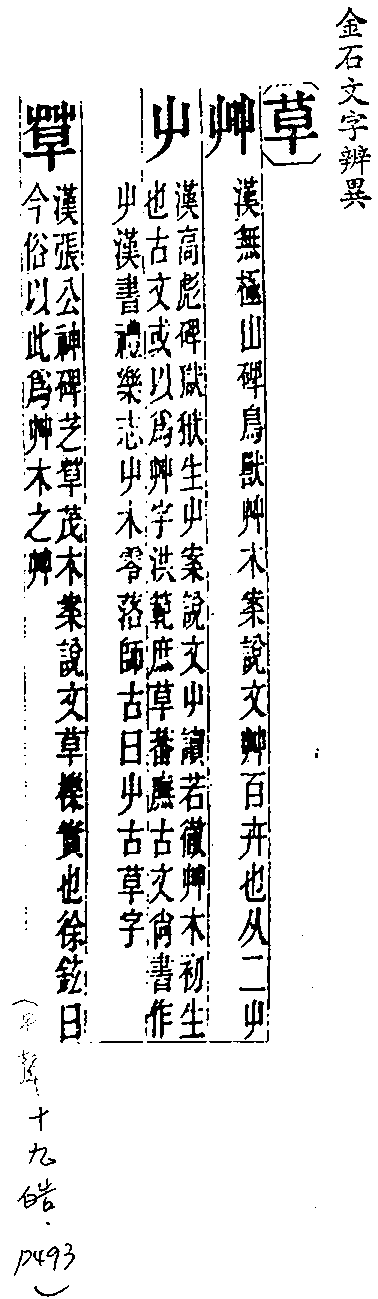 金石文字辨異
草
艸
漢無極山碑鳥獸艸木案說文艸百卉也从二屮
屮
漢高彪碑獄狱生屮案說文屮讀若徹艸木初生
也古文或以爲艸字洪範庶草蕃廡古文尙書作
屮漢書禮樂志屮木零落師古曰屮古草字
漢張公神碑芝草茂木案說文草櫟實也徐鉉曰
今俗以此爲艸木之艸
聲十九皓.
p493)